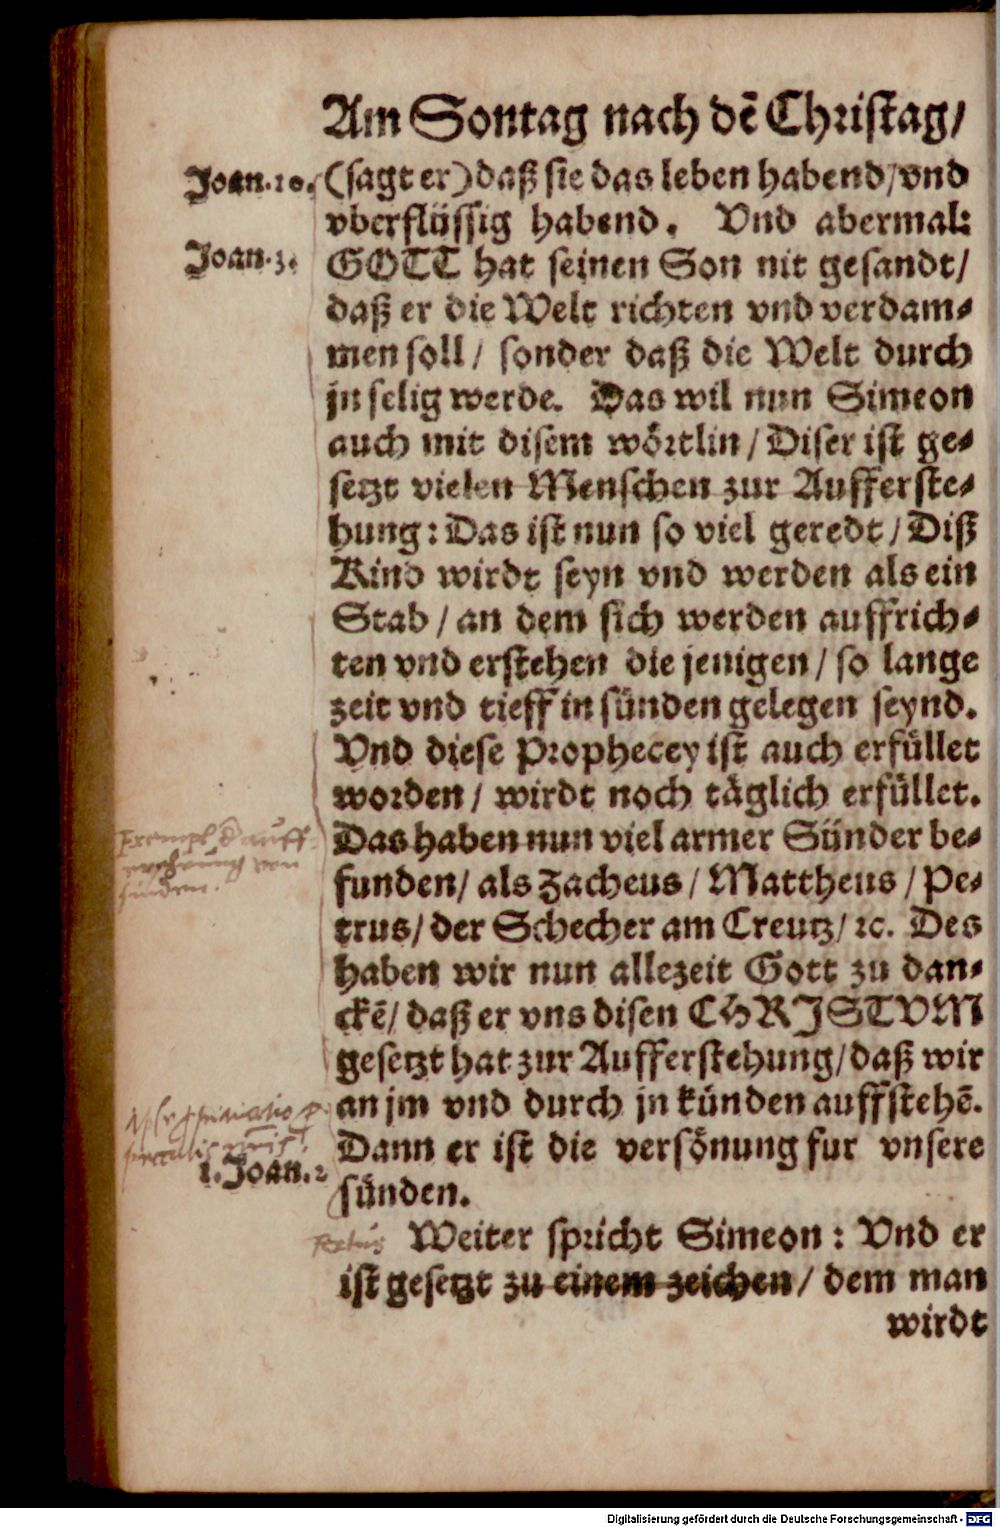 Am Sontag nach dē Christag/
Joan.10.
(sagt er) daß sie das leben habend/vnd
vberflüssig habend. Vnd abermal:
Joan.3.
GOTT hat seinen Son nit gesandt/
daß er die Welt richten vnd verdam⸗
men soll/ sonder daß die Welt durch
jn selig werde. Das wil nun Simeon
auch mit disem wörtlin/ Diser ist ge⸗
setzt vielen Menschen zur Aufferste⸗
hung: Das ist nun so viel geredt/ Diß
Kind wirdt seyn vnd werden als ein
Stab/ an dem sich werden auffrich⸗
ten vnd erstehen die jenigen/ so lange
zeit vnd tieff in sünden gelegen seynd.
Vnd diese Prophecey ist auch erfüllet
worden/ wirdt noch täglich erfüllet.
Das haben nun viel armer Sünder be⸗
funden/ als Zacheus/ Mattheus/ Pe⸗
trus/ der Schecher am Creutz/ ꝛc. Des
haben wir nun allezeit Gott zu dan⸗
ckē/ daß er vns disen CHRISTVM
gesetzt hat zur Aufferstehung/ daß wir
an jm vnd durch jn künden auffstehē.
Dann er ist die versönung fur vnsere
1.Joan.2
sünden.
Weiter spricht Simeon: Vnd er
ist gesetzt zu einem zeichen/ dem man
wirdt
von
sünden.
Digitalisierung gefördert durch die Deutsche Forschungsgemeinschaft - DFG